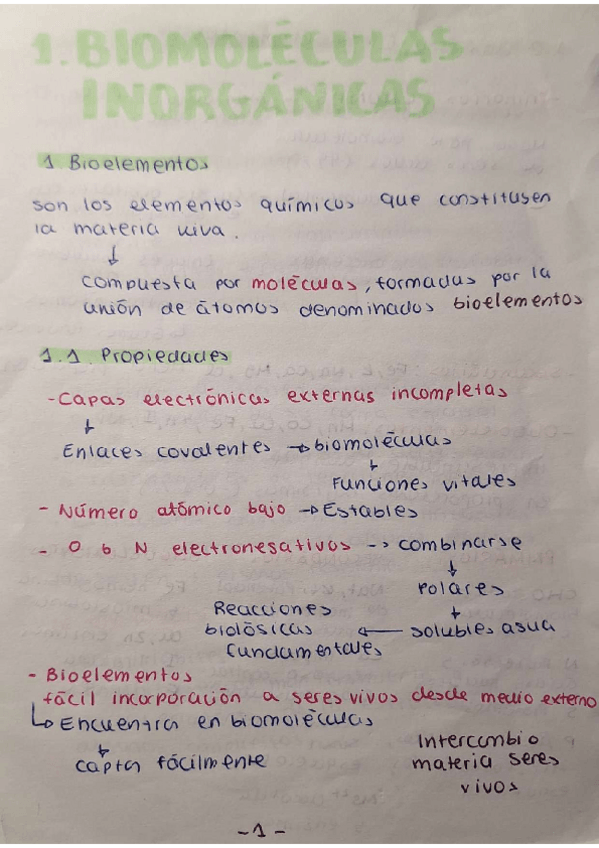 1. BIOMOLÉCULAS
INORGÁNICAS
1 Bioelementos
son los elementos químicos que constituyen
la materia viva.
↓
compuesta por moléculas, formadas por la
unión de átomos denominados bioelementos
1.1. Propiedades
- Capas electrónicas externas incompletas
↓
Enlaces covalentes → biomoléculas
↓
Funciones vitales
- Número atómico bajo → Estables
- O ó N electronegativos → combinarse
↓
Polares
↓
solubles agua
←
Reacciones
biológicas
fundamentales
- Bioelementos
fácil incorporación a seres vivos desde medio externo
↳ Encuentra en biomoléculas
↓
capta fácilmente
Intercambio
materia seres
vivos
- 1 -